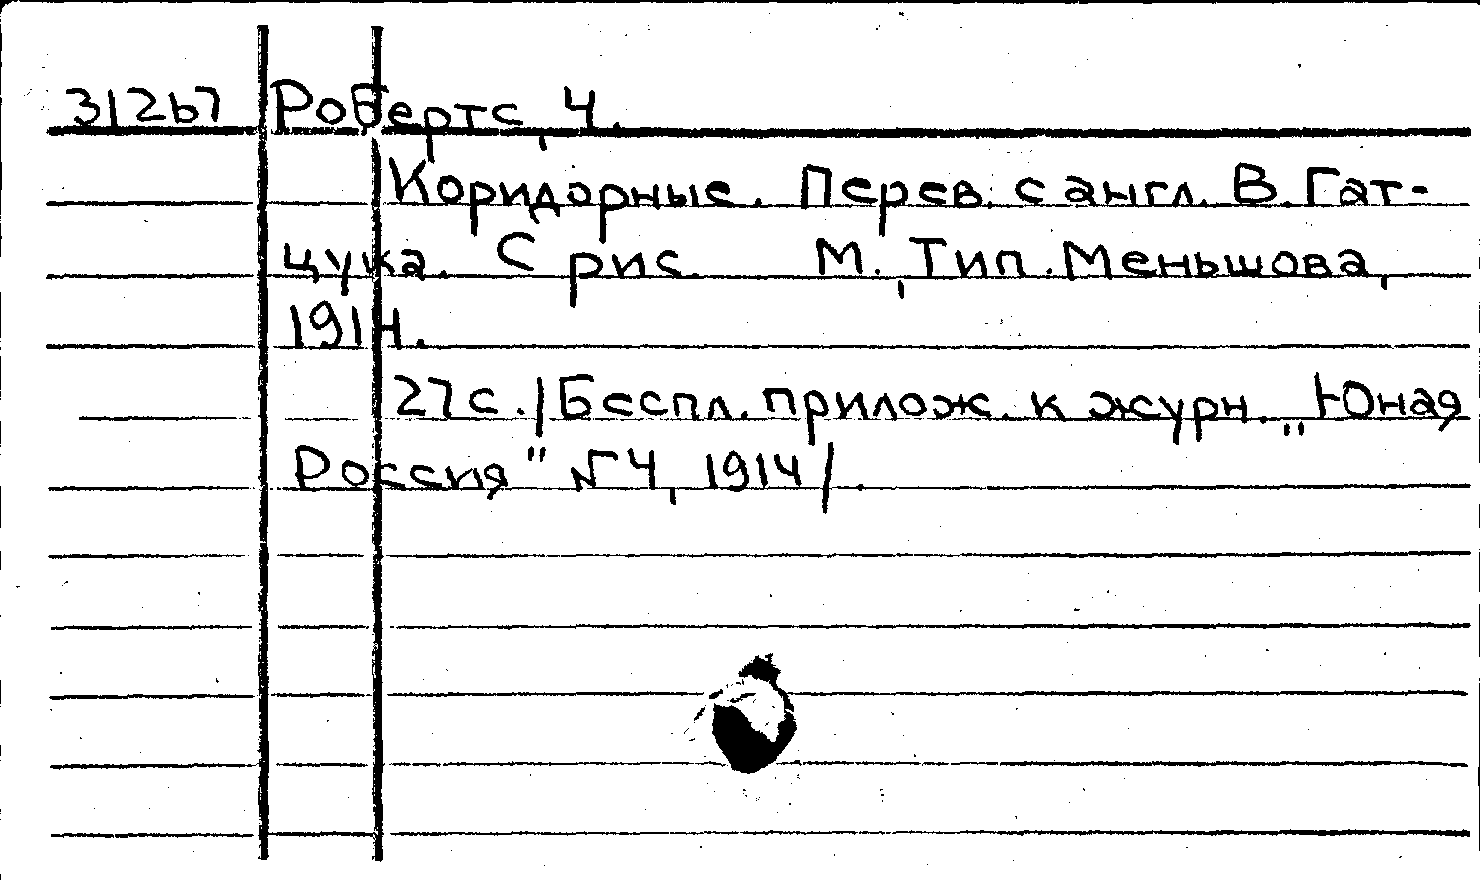 31267 Робертс, Ч.
Коридорные. Перев. с англ. В. Гат-
цука. С рис. М., Тип. Меньшова,
1914.
27 с. /Беспл. прилож. к журн. „Юная
Россия" №4, 1914/.